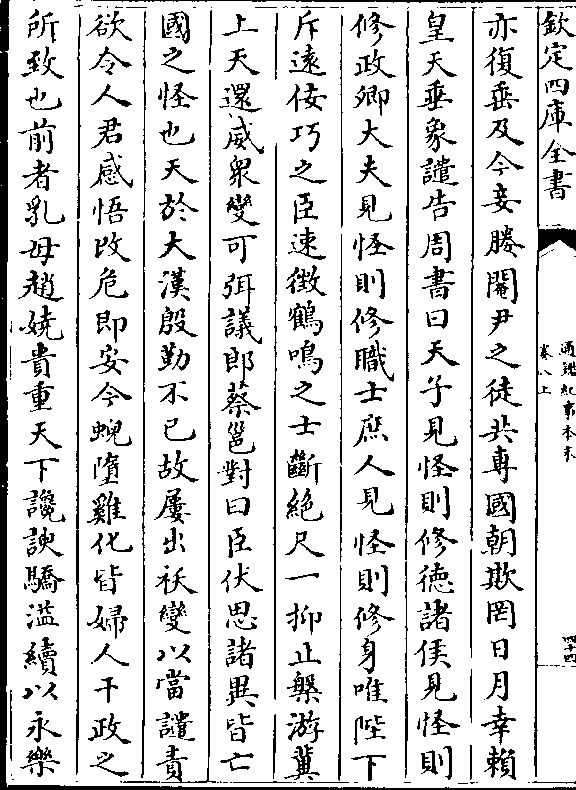 欽定四庫全書
通鑑紀事本末
卷八上
四十四
亦復垂及今妾媵閹尹之徒共専國朝欺罔日月幸賴
皇天垂象譴告周書曰天子見怪則修徳諸侯見怪則
修政卿大夫見怪則修職士庶人見怪則修身唯陛下
斥遠佞巧之臣速徴鶴鳴之士斷絶尺一抑止槃游冀
上天還威衆變可弭議郎蔡邕對曰臣伏思諸異皆亡
國之怪也天於大漢殷勤不已故屢出祅變以當譴責
欲令人君感悟改危即安今蜺墮雞化皆婦人干政之
所致也前者乳母趙嬈貴重天下讒諛驕溢續以永樂